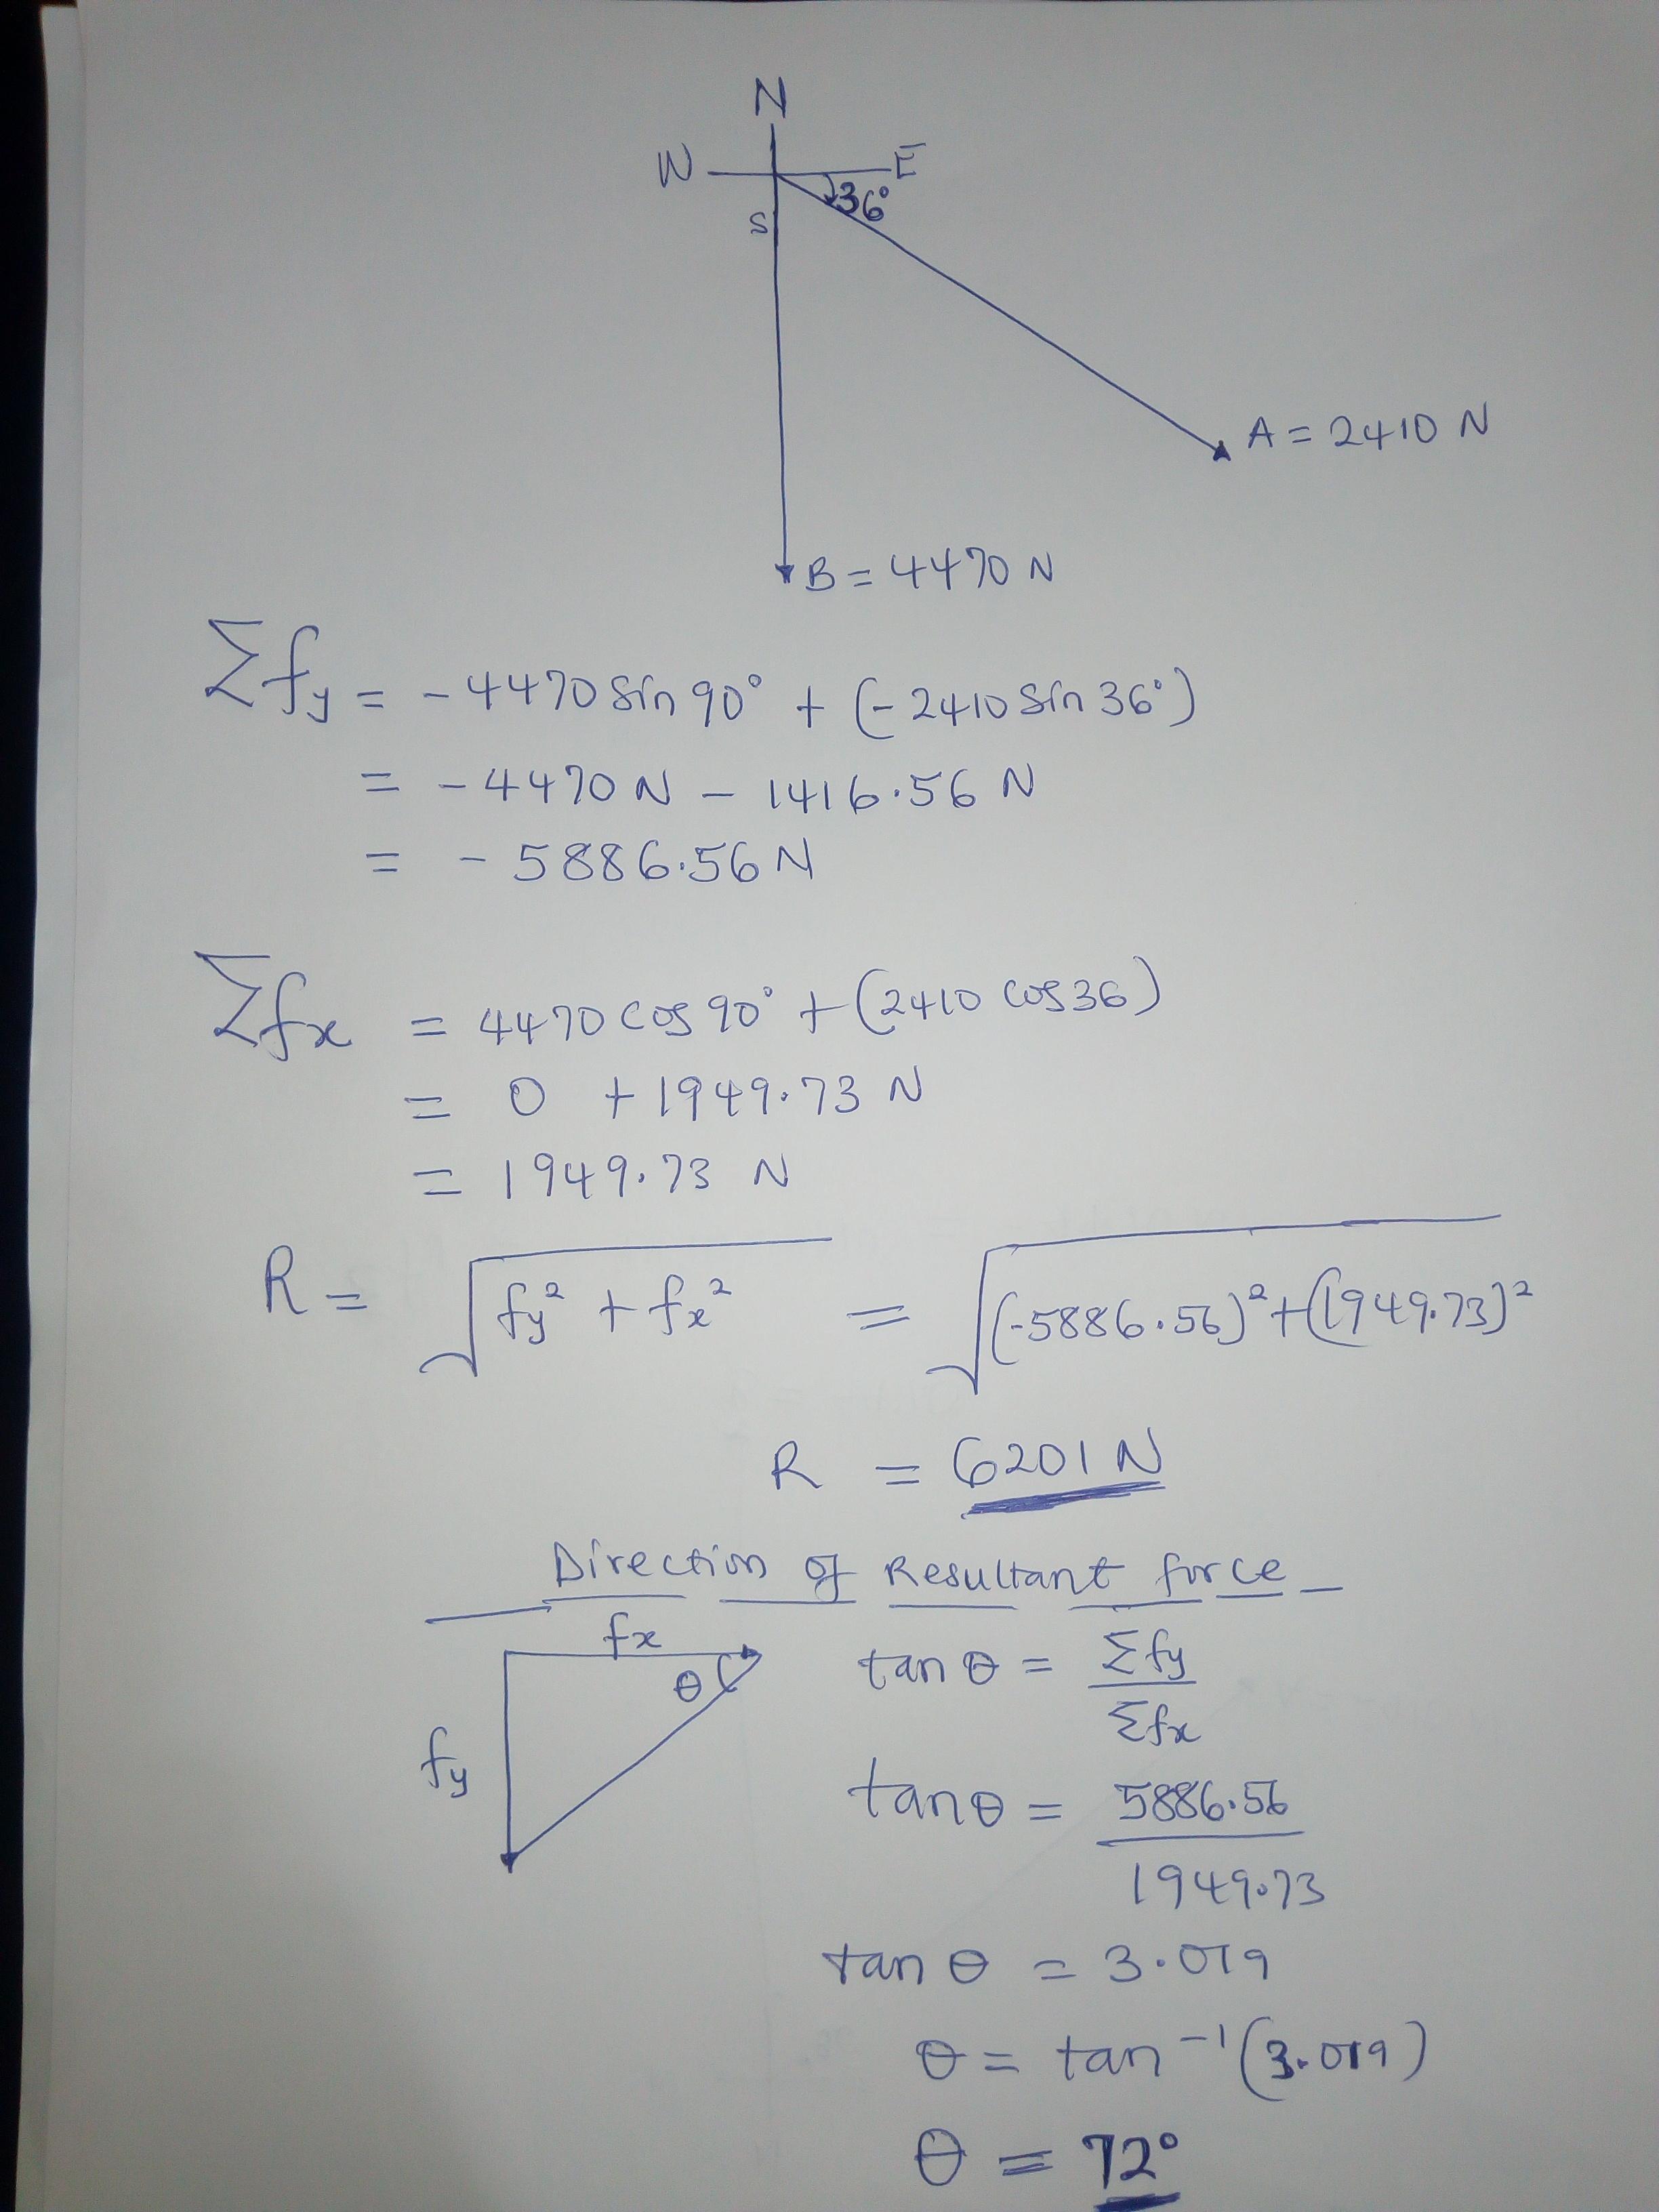 N
W E
36°
S
A = 2410 N
B = 4470 N
Σfy = -4470 Sin 90° + (-2410 Sin 36°)
= -4470 N - 1416.56 N
= - 5886.56 N
Σfx = 4470 Cos 90° + (2410 Cos 36)
= 0 + 1949.73 N
= 1949.73 N
R = √fy² + fx² = √(-5886.56)² + (1949.73)²
R = 6201 N
Direction of Resultant force
fx
θ
fy
tan θ = Σfy
Σfx
tan θ = 5886.56
1949.73
tan θ = 3.019
θ = tan⁻¹ (3.019)
θ = 72°